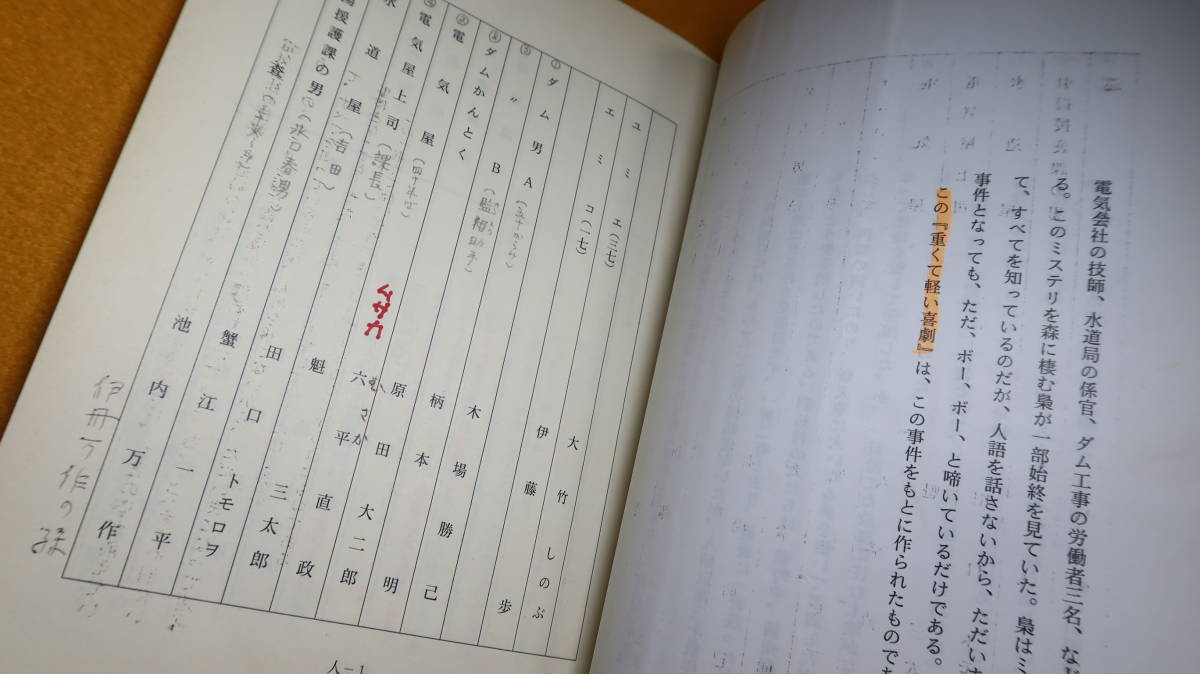 電気会社の技師、水道局の係官、ダム工事の労働者三名、など
る。このミステリを森に棲む梟が一部始終を見ていた。梟はミ
て、すべてを知っているのだが、人語を話さないから、ただい
事件となっても、ただ、ボー、ボー、と啼いているだけである。
この『重くて軽い喜劇』は、この事件をもとに作られたもので
ユミエ(三七) 大竹しのぶ
エミコ(一七) 伊藤歩
①ダム男A(五十がらみ) 木場勝己
③〃B 柄本明
ダムかんとく 原田大二郎
②電気屋(四十半ば) 六平直政
むさか
④電気屋上司(課長) 魁三太郎
水道屋(吉田) 田口トモロヲ
援護課の男(水口春男) 蟹江一平
査 池内万作
伊丹万作の孫
人-1